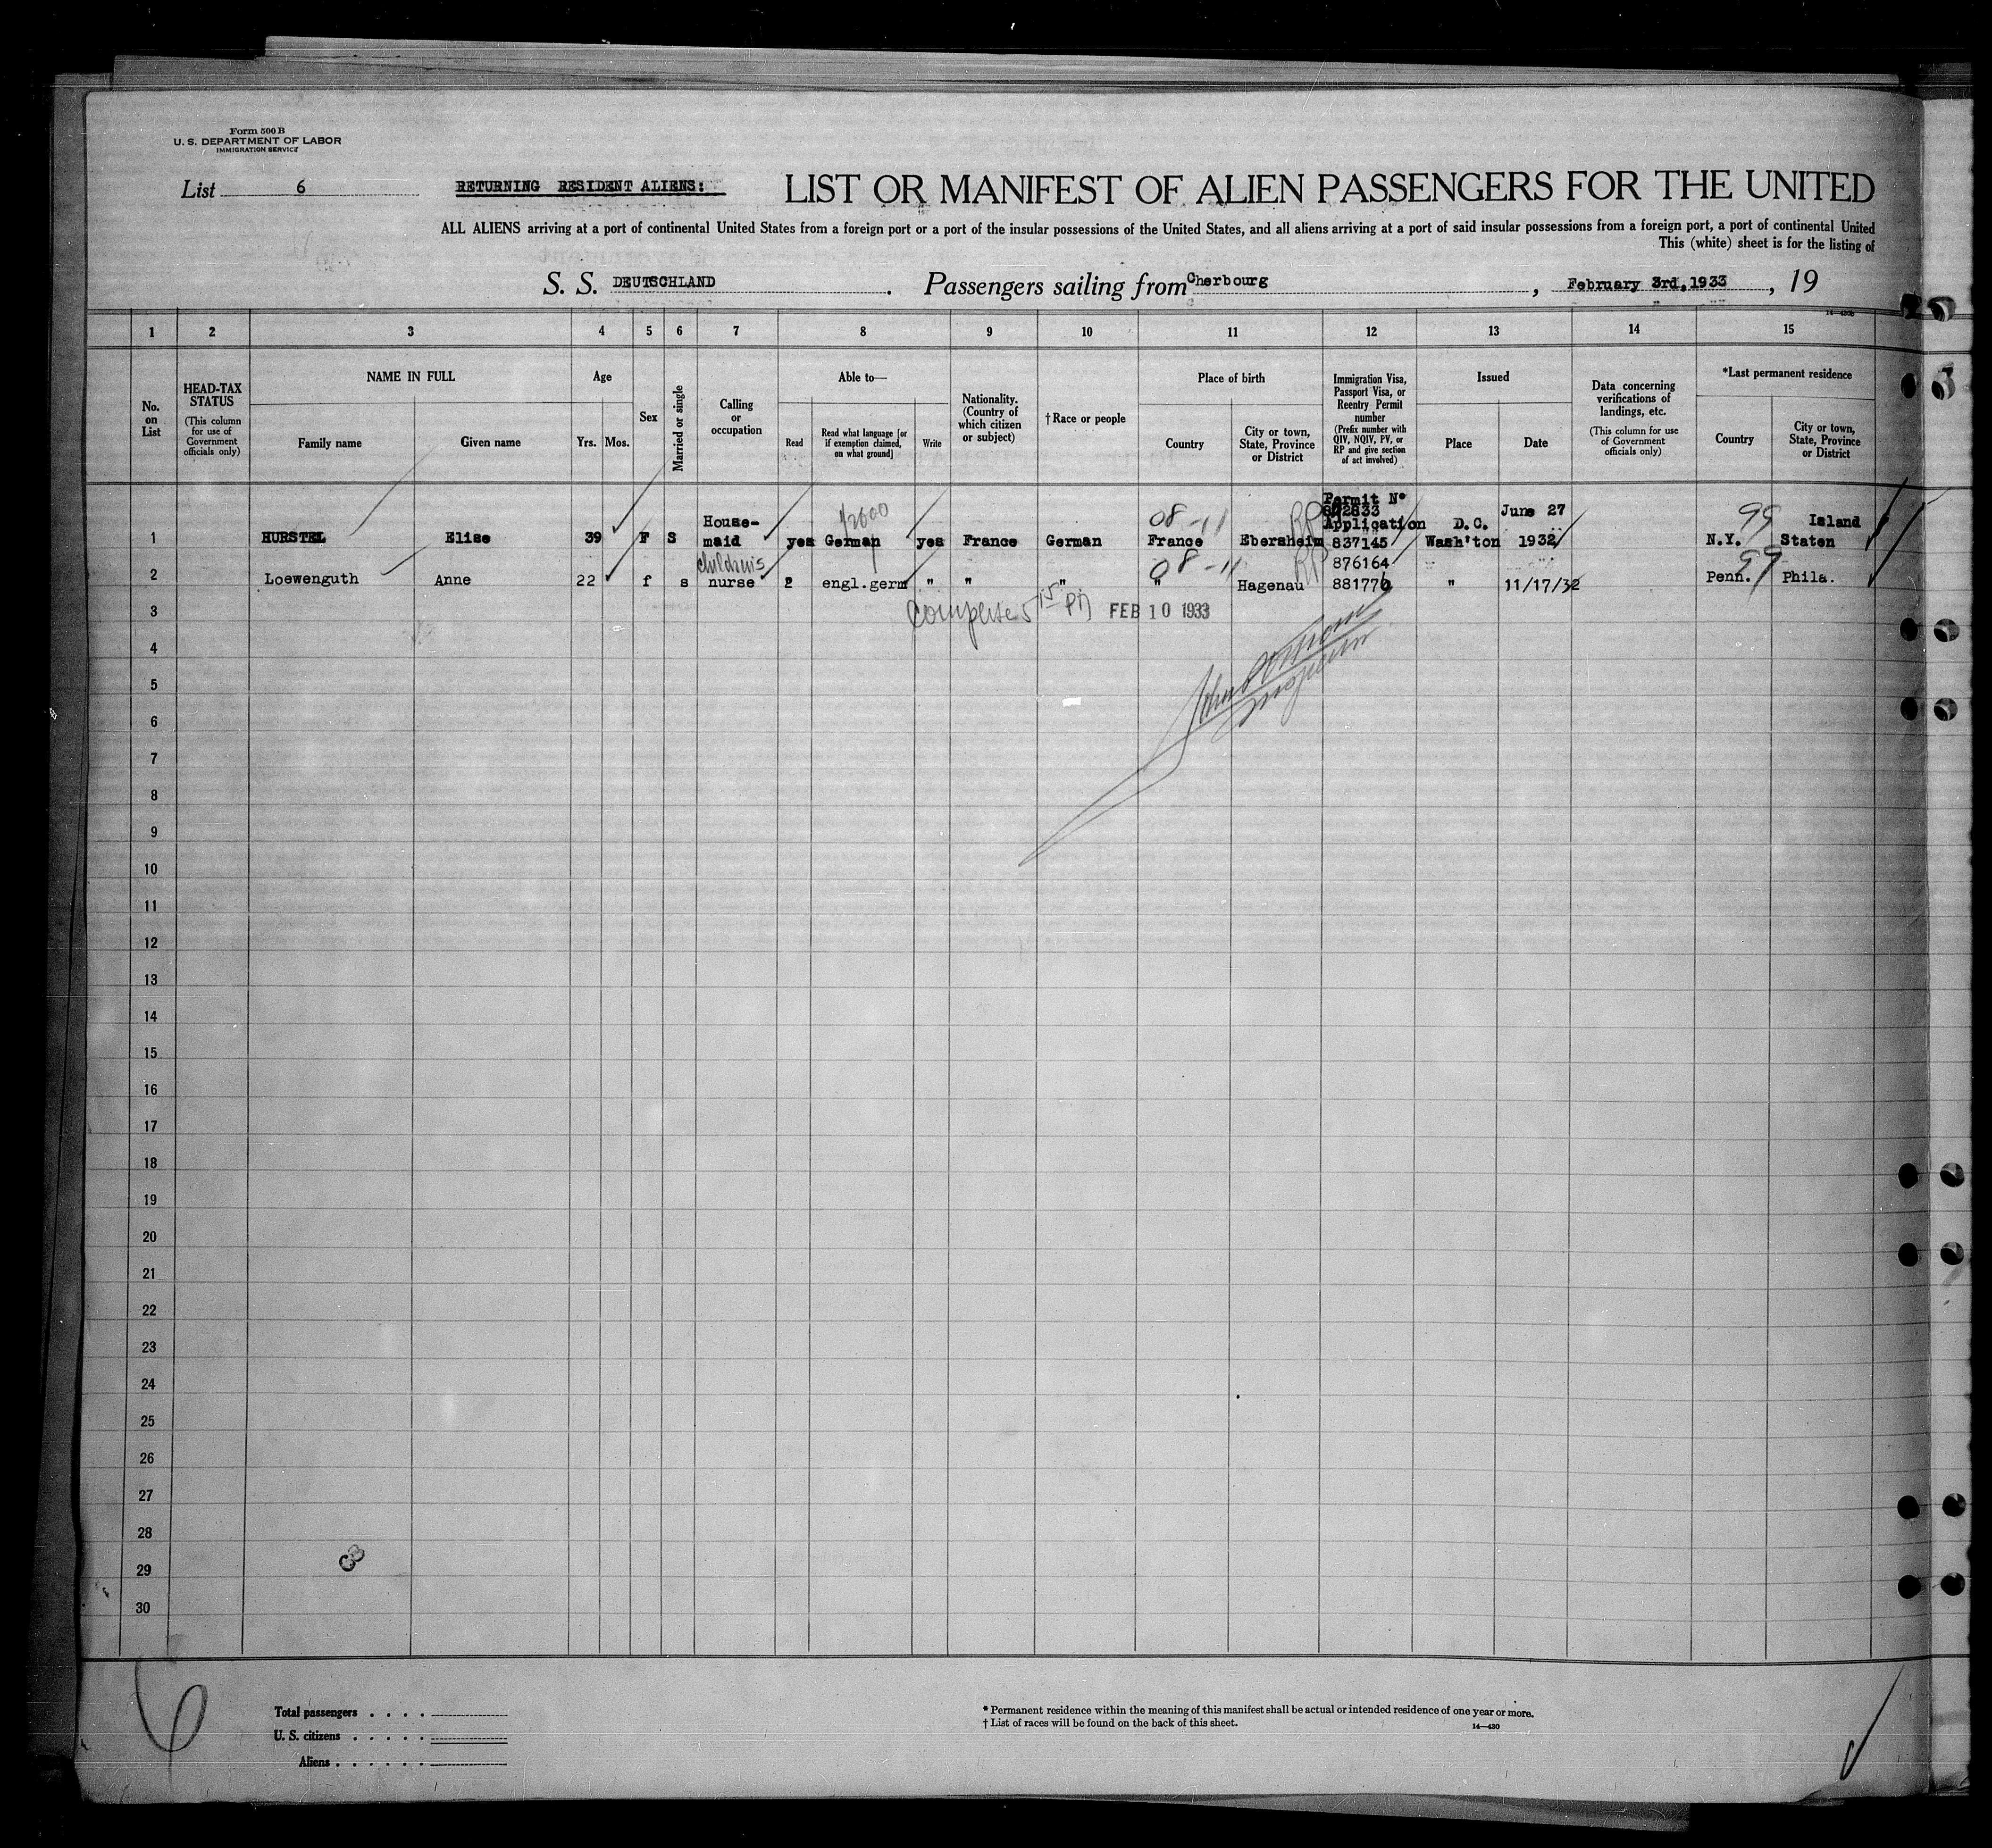 Form 500 B
U. S. DEPARTMENT OF LABOR
IMMIGRATION SERVICE
List 6
RETURNING RESIDENT ALIENS:
LIST OR MANIFEST OF ALIEN PASSENGERS FOR THE UNITED
ALL ALIENS arriving at a port of continental United States from a foreign port or a port of the insular possessions of the United States, and all aliens arriving at a port of said insular possessions from a foreign port, a port of continental United
This (white) sheet is for the listing of
S. S. DEUTSCHLAND. Passengers sailing from Cherbourg, February 3rd, 1933, 19
14—430b
1 2 3 4 5 6 7 8 9 10 11 12 13 14 15
No. on List
HEAD-TAX STATUS
(This column for use of Government officials only)
NAME IN FULL
Family name
Given name
Age
Yrs. Mos.
Sex
Married or single
Calling or occupation
Able to—
Read
Read what language [or if exemption claimed, on what ground]
Write
Nationality. (Country of which citizen or subject)
† Race or people
Place of birth
Country
City or town, State, Province or District
Immigration Visa, Passport Visa, or Reentry Permit number
(Prefix number with QIV, NQIV, PV, or RP and give section of act involved)
Issued
Place
Date
Data concerning verifications of landings, etc.
(This column for use of Government officials only)
*Last permanent residence
Country
City or town, State, Province or District
1 HURSTEL Elise 39 F S House-maid yes German yes France German 08-11 France Ebersheim RP Permit No Application 837145 Wash'ton D.C. June 27 1932 99 N.Y. Staten Island
2 Loewenguth Anne 22 f s children's nurse 2 engl.germ " " " 08-11 " Hagenau RP 876164 881776 " 11/17/32 99 Penn. Phila.
FEB 10 1933
3
4
5
6
7
8
9
10
11
12
13
14
15
16
17
18
19
20
21
22
23
24
25
26
27
28
29
30
6
Total passengers . . . .
U. S. citizens . . . . .
Aliens . . . . . .
* Permanent residence within the meaning of this manifest shall be actual or intended residence of one year or more.
† List of races will be found on the back of this sheet.
14—430